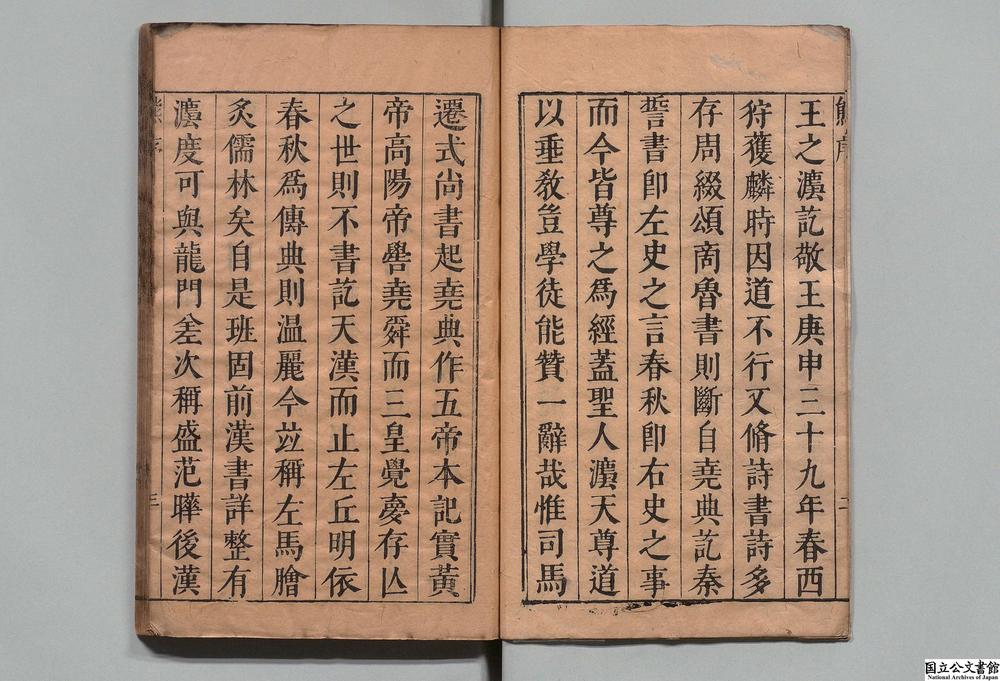 王之灋訖敬王庚申三十九年春西
狩獲麟時因道不行又脩詩書詩多
存周綴頌商魯書則斷自堯典訖秦
誓書卽左史之言春秋卽右史之事
而今皆尊之爲經蓋聖人灋天尊道
以垂敎豈學徒能贊一辭哉惟司馬
遷式尚書起堯典作五帝本記實黃
帝高陽帝嚳堯舜而三皇覺夢存亾
之世則不書訖天漢而止左丘明依
春秋爲傳典則温麗今竝稱左馬膾
炙儒林矣自是班固前漢書詳整有
灋度可與龍門差次稱盛范曄後漢
三
国立公文書館
National Archives of Japan